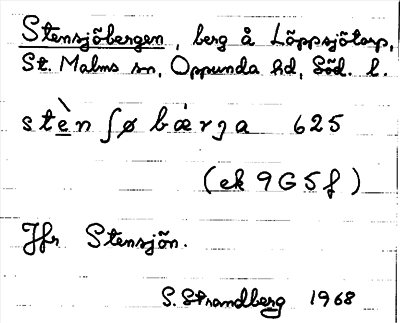 Stensjöbergen, berg å Löppsjötorp,
St. Malms sn, Oppunda hd, Söd. l.
stèn ʃø bæ̀rɟa 625
(ek 9G5f)
Jfr Stensjön.
S. Strandberg 1968